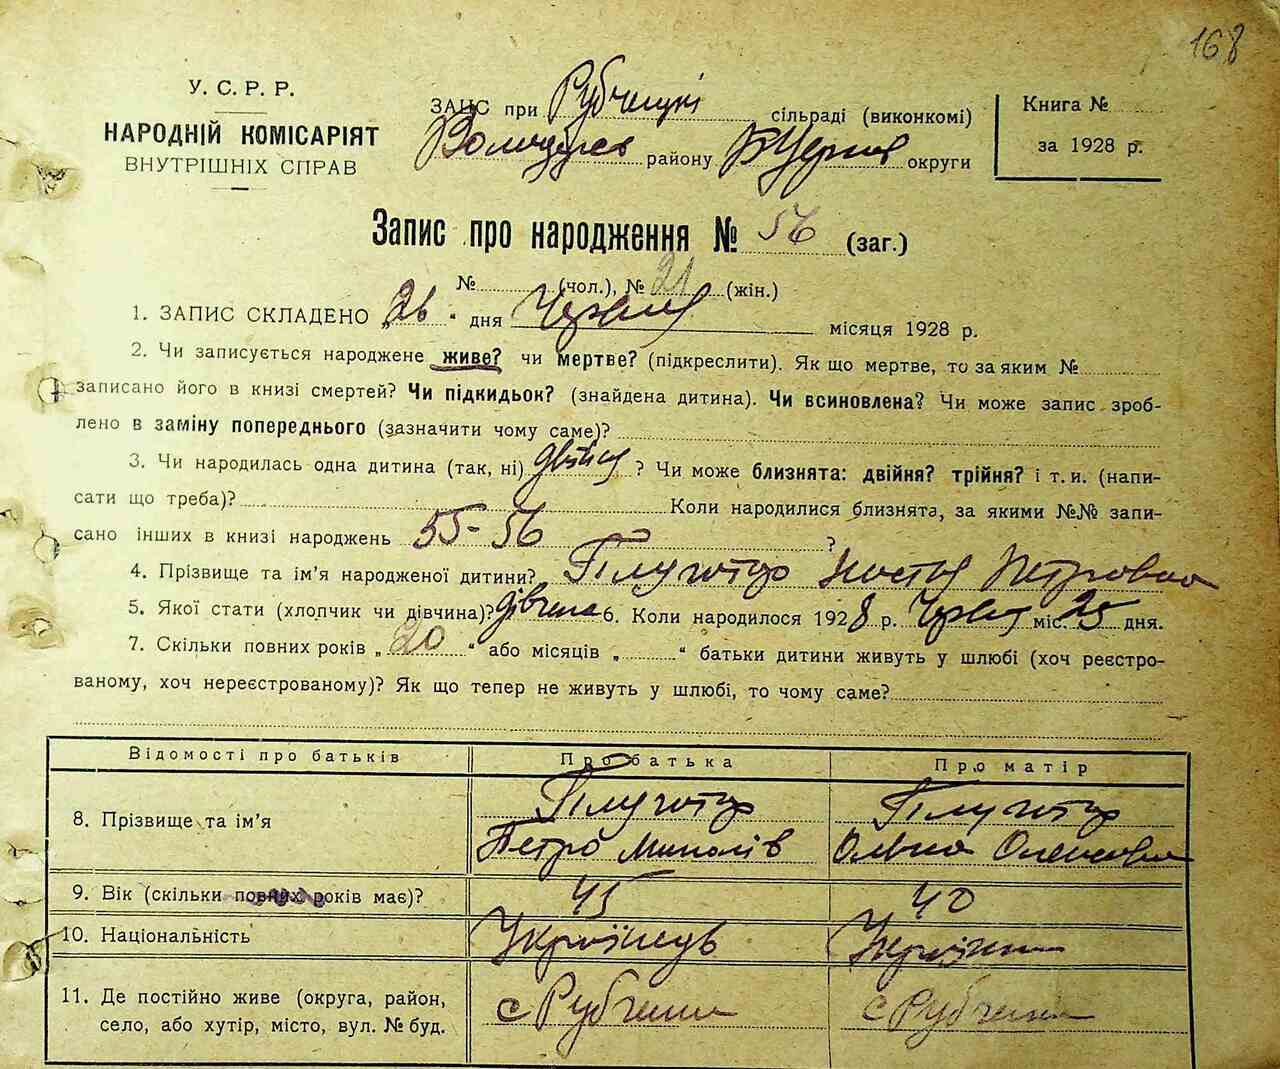 168
У. С. Р. Р.
НАРОДНІЙ КОМІСАРІЯТ
ВНУТРІШНІХ СПРАВ
ЗАГС при Рубченцкі сільраді (виконкомі)
Володарс району Б Церков округи
Книга №
за 1928 р.
Запис про народження № 56 (заг.)
№ (чол.), № 21 (жін.)
1. ЗАПИС СКЛАДЕНО „26“ дня Червня місяця 1928 р.
2. Чи записується народжене живе? чи мертве? (підкреслити). Як що мертве, то за яким №
записано його в книзі смертей? Чи підкидьок? (знайдена дитина). Чи всиновлена? Чи може запис зроб-
лено в заміну попереднього (зазначити чому саме)?
3. Чи народилась одна дитина (так, ні) двійня ? Чи може близнята: двійня? трійня? і т. и. (напи-
сати що треба)? Коли народилися близнята, за якими №№ запи-
сано інших в книзі народжень 55-56 ?
4. Прізвище та ім’я народженої дитини? Настя Петровна
5. Якої стати (хлопчик чи дівчина)? дівчена 6. Коли народилося 1928 р. Червня міс. 25 дня.
7. Скільки повних років „20“ або місяців „ “ батьки дитини живуть у шлюбі (хоч реєстро-
ваному, хоч нереєстрованому)? Як що тепер не живуть у шлюбі, то чому саме?
Відомості про батьків Про батька Про матір
8. Прізвище та ім’я
Петро Миколів Ольга Олексовна
9. Вік (скільки повних років має)? 45 40
10. Національність Українець Українка
11. Де постійно живе (округа, район, с Рубченки с Рубченки
село, або хутір, місто, вул. № буд.